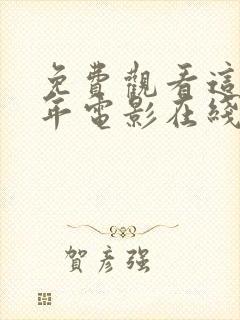 免費觀看這
年電影在綫
賀彥強